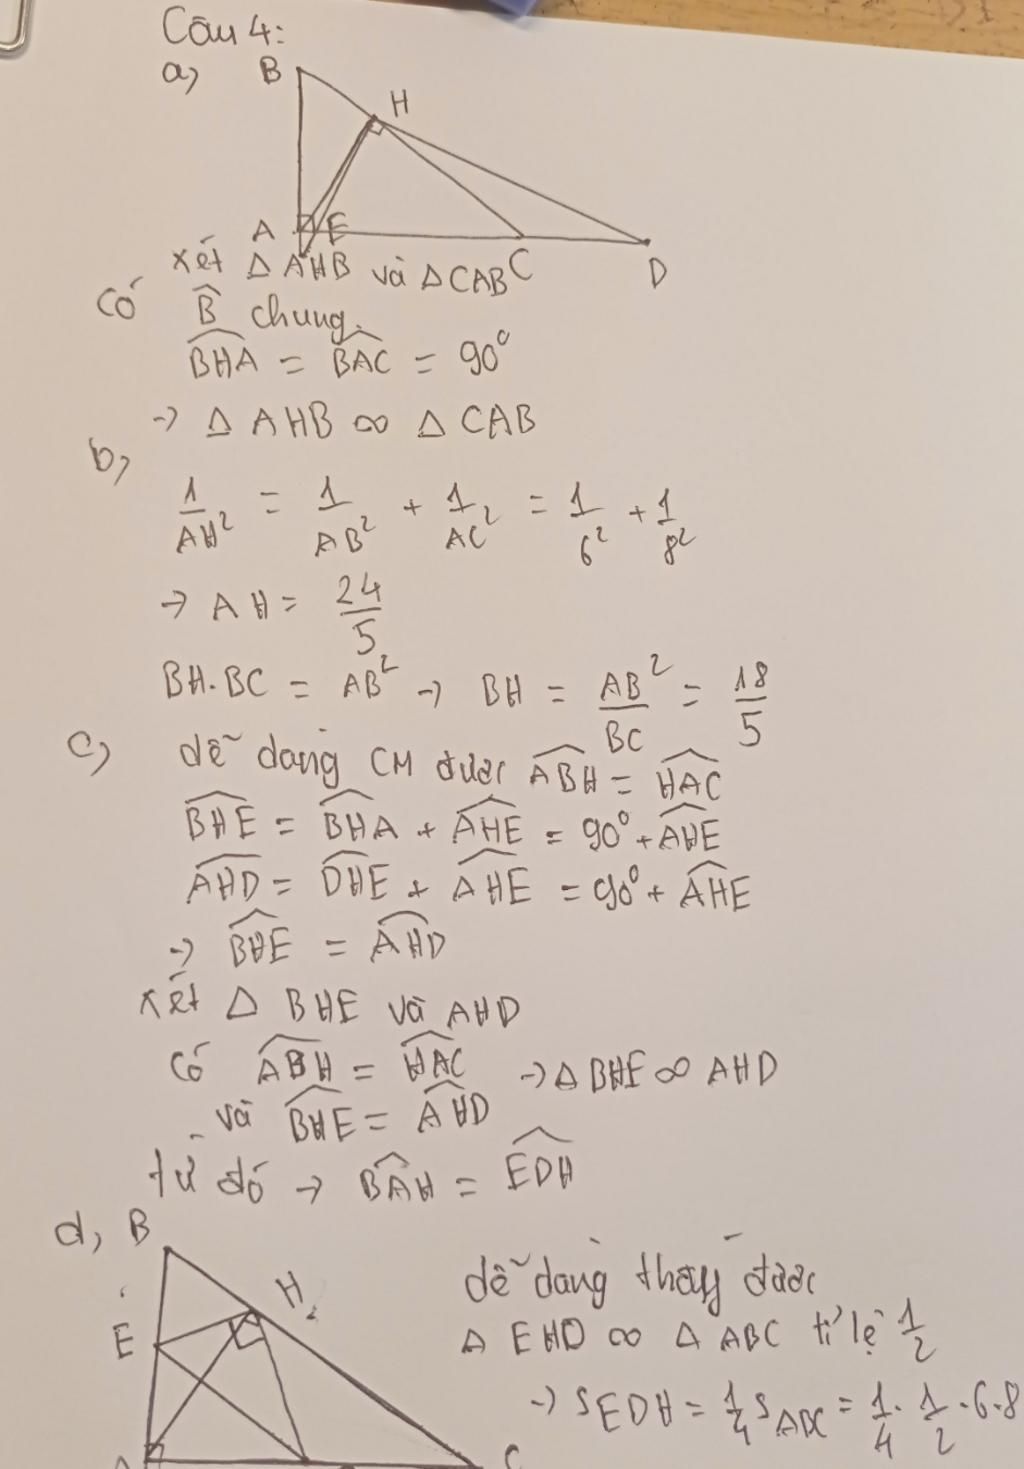 Câu 4:
a, B
H
A E
C
D
xét Δ AHB và Δ CAB
Có B̂ chung.
\widehat{BHA} = \widehat{BAC} = 90°
→ Δ AHB ∽ Δ CAB
b,
1/AH² = 1/AB² + 1/AC² = 1/6² + 1/8²
→ AH = 24/5
BH.BC = AB² → BH = AB²/BC = 18/5
c, dễ dàng CM được \widehat{ABH} = \widehat{HAC}
\widehat{BHE} = \widehat{BHA} + \widehat{AHE} = 90° + \widehat{AHE}
\widehat{AHD} = \widehat{DHE} + \widehat{AHE} = 90° + \widehat{AHE}
→ \widehat{BHE} = \widehat{AHD}
xét Δ BHE và AHD
Có \widehat{ABH} = \widehat{HAC} → Δ BHE ∽ AHD
và \widehat{BHE} = \widehat{AHD}
từ đó → \widehat{BAH} = \widehat{EDH}
d, B
H
E
A
C
dễ dàng thấy được
Δ EHD ∽ Δ ABC tỉ lệ 1/2
→ S EDH = 1/4 S ABC = 1/4 . 1/2 . 6.8